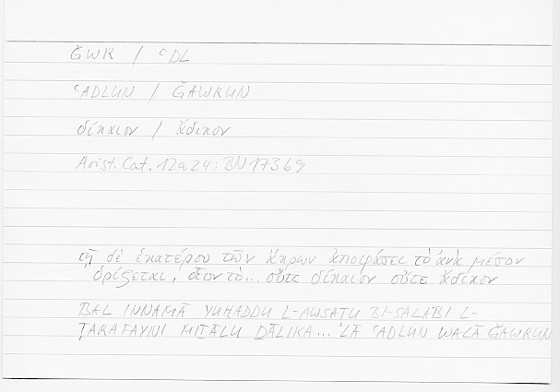 ǦWR / ʿDL
ʿADLUN / ǦAWRUN
δίκαιον / ἄδικον
Arist. Cat. 12a24: BN 173b9
τῇ δὲ ἑκατέρου τῶν ἄκρων ἀποφάσει τὸ ἀνὰ μέσον
ὁρίζεται, οἷον τὸ... οὔτε δίκαιον οὔτε ἄδικον
BAL INNAMĀ YUḤADDU L-AWSAṬU BI-SALABI L-
ṬARAFAYNI MIṮĀLU ḎĀLIKA... LĀ ʿADLUN WALĀ ǦAWRUN